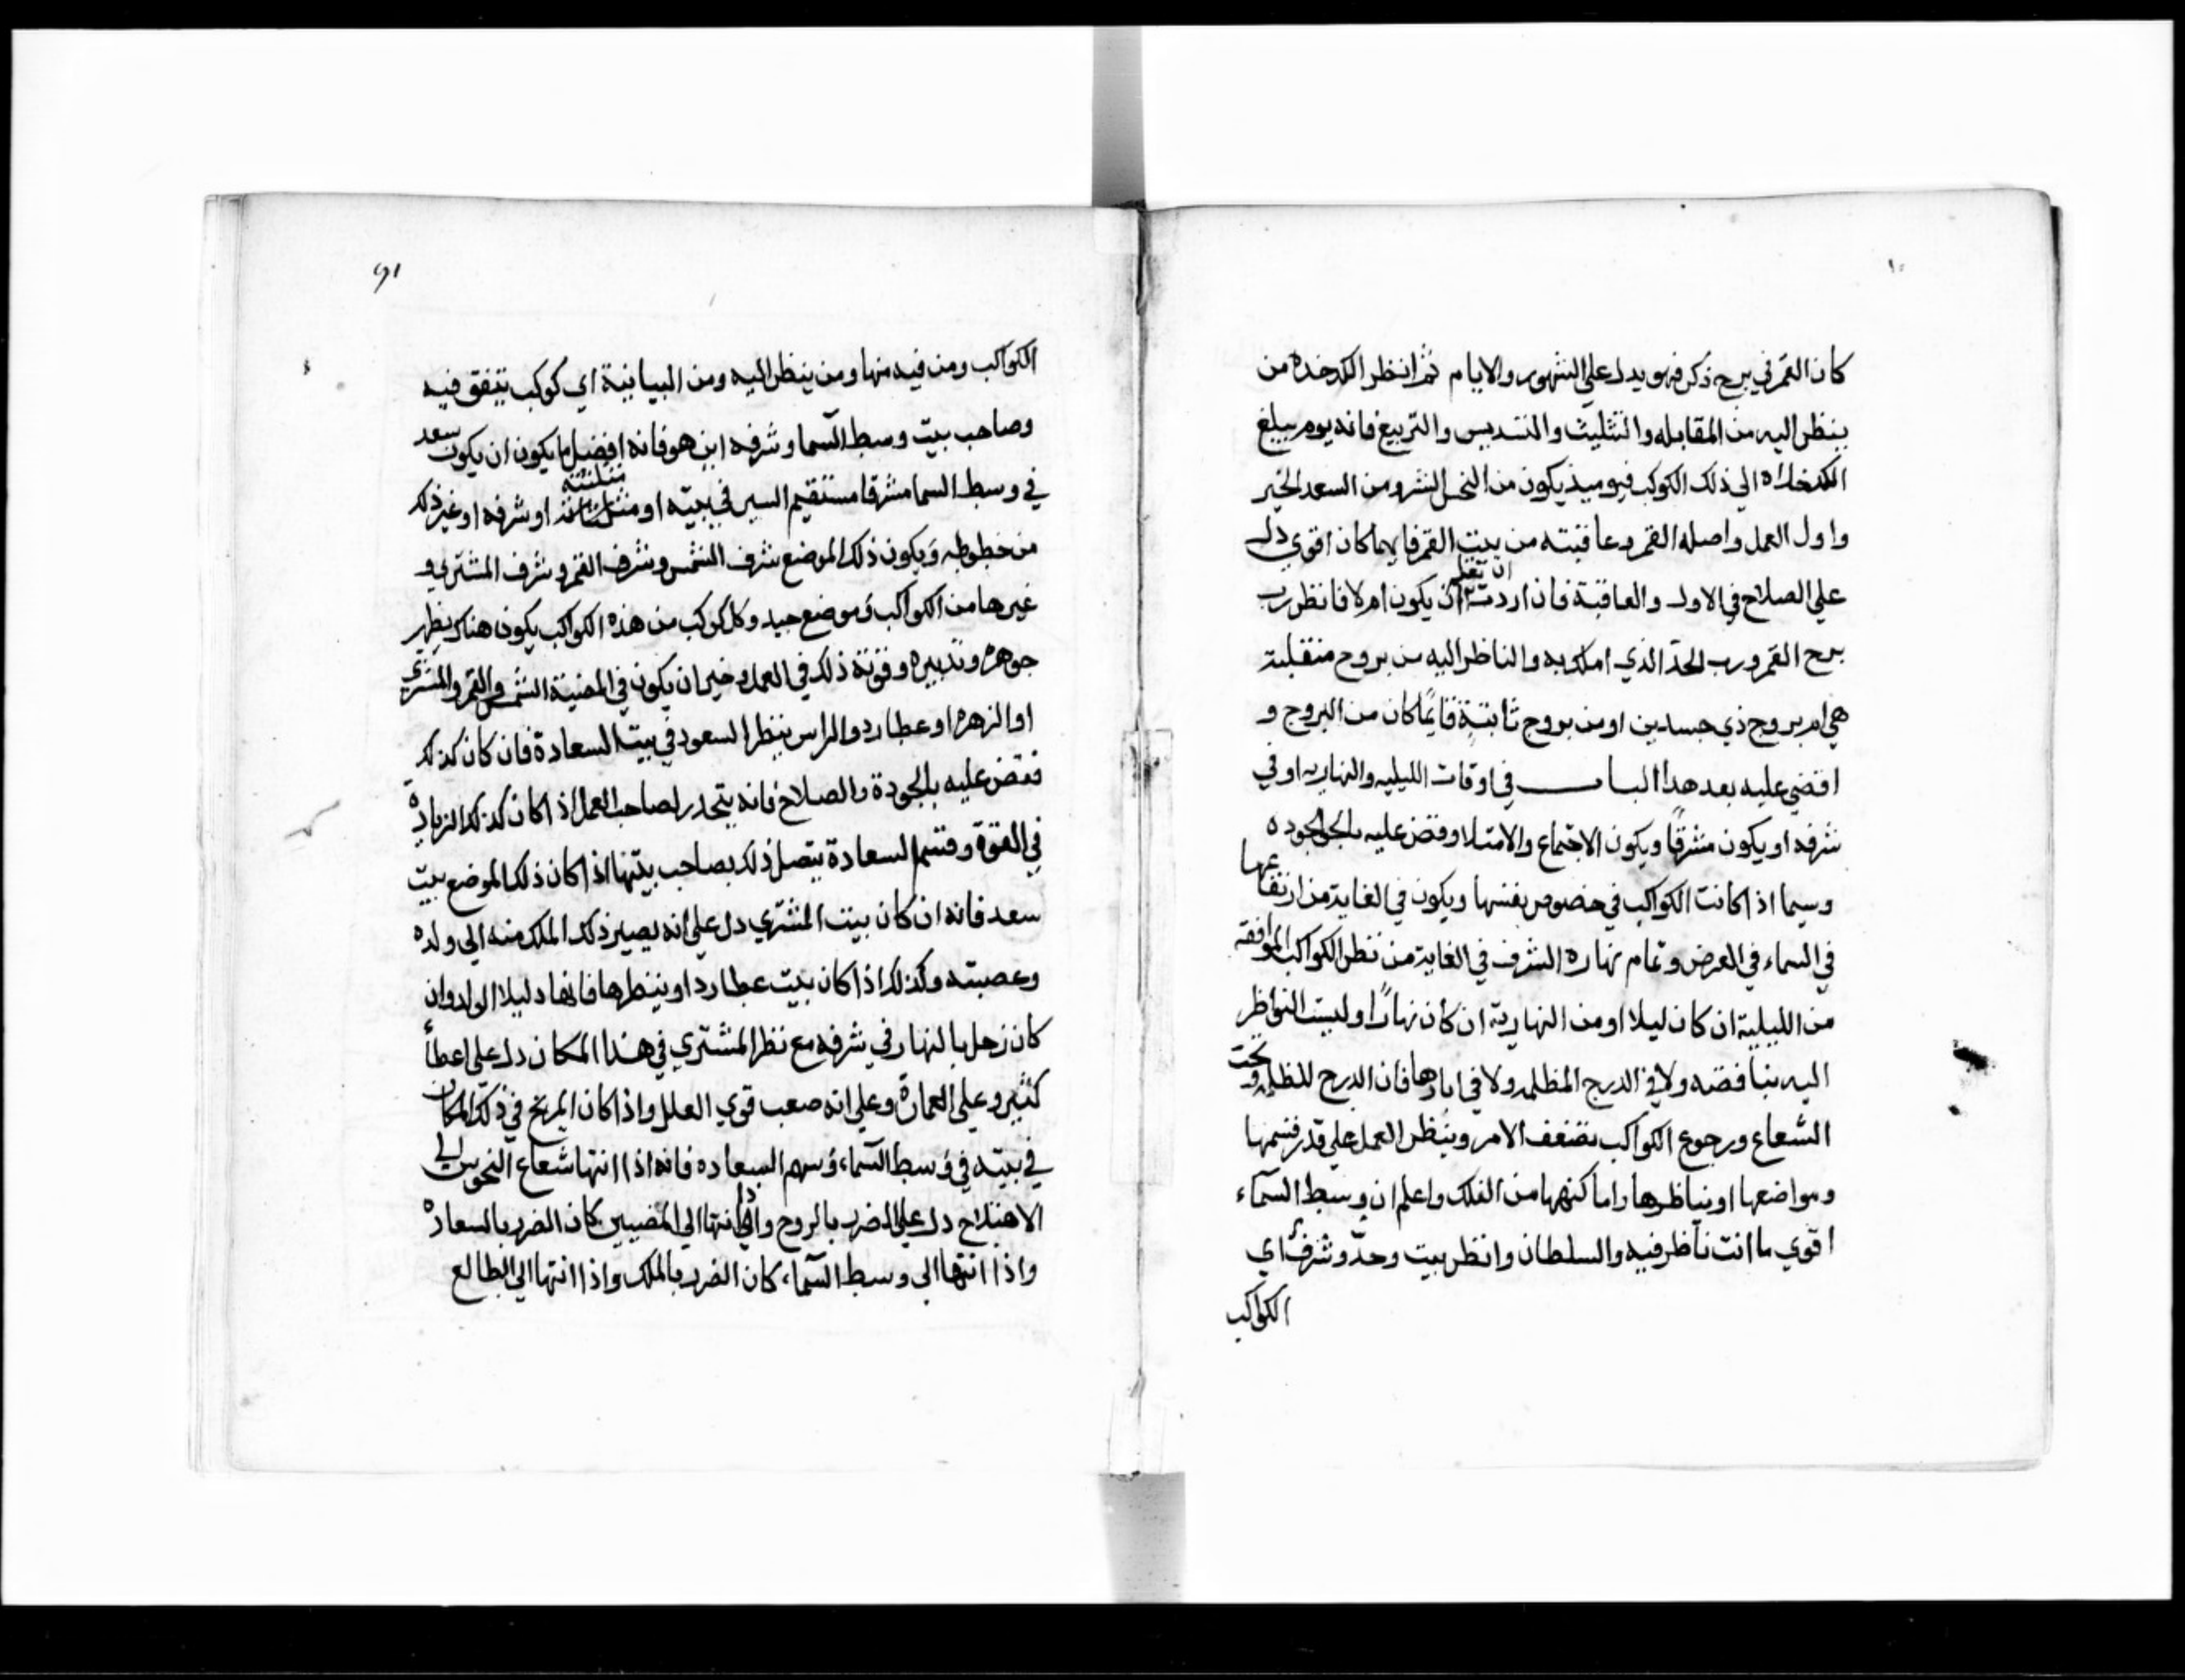 كان القمر في برج ذكر فهو يدل علي الشهور والايام ثم انظر الكدخده من
ينظر اليه من المقابله والتثليث والتسديس والتربيع فانه يوم يبلغ
الكدخداه الي ذلك الكوكب فيوميذ يكون من النحس الشر ومن السعد الخير
واول العمل واصله القمر وعاقبته من بيت القمر فايهما كان اقوي دل
علي الصلاح في الاول والعاقبة فان اردت ان تعلم أن يكون ام لا فانظر رب
برج القمر ورب الحدّ الذي املك به والناظر اليه من بروج منقلبة
هي ام بروج ذي جسدين او من بروج ثابتة فايمًا كان من البروج و
اقضي عليه بعد هدا الباب في اوقات الليليه والنهاريه او في
شرفه او يكون مشرقًا ويكون الاجتماع والامتلا وقض عليه بالجوده
وسيما اذا كانت الكواكب في خصوص بفسها ويكون في الغاية من ارتفاعها
في السماء في العرض وتمام نهاره الشرف في الغاية من نظر الكواكب الموافقه
من الليلية ان كان ليلا او من النهارية ان كان نهارًا وليست النواظر
اليه بناقضه ولا في الدرج المظلمه ولا في ابارها فان الدرج المظلمه وتحت
الشعاع ورجوع الكواكب تضعف الامر وينظر العمل علي قدر قسمها
ومواضعها او بناظرها واماكنهها من الفلك واعلم ان وسط السمآء
اقوي ما انت ناظر فيه والسلطان وانظر بيت وحدّ وشرف اي
الكواكب
٩١
الكواكب ومن فيه منها ومن ينظر اليه ومن البيابانية اي كوكب يتفق فيه
وصاحب بيت وسط السما وشرفه اين هو فانه افضل ما يكون ان يكون سعد
في وسط السما مشرقا مستقيم السير في بيته او مثلثته او شرفه او غير ذلك
من حظوظه ويكون ذلك الموضع شرف الشمس وشرف القمر وشرف المشتري و
غيرها من الكواكب في موضع جيد وكل كوكب من هذه الكواكب يكون هناك يظهر
جوهره وتدبيره وقوته ذلك في العمل وخير ان يكون في المضيئة الشمس والقمر والمشتري
او الزهره او عطارد والراس ينظر السعود في بيت السعادة فان كان كذلك
فقض عليه بالجودة والصلاح فانه يتحدر لصاحب العمل اذا كان كذلك الزيادة
في القوة وقسم السعادة يتصل ذلك بصاحب بيتها اذا كان ذلك الموضع بيت
سعد فانه ان كان بيت المشتري دل علي انه يصير ذلك الملك منه الي ولده
وعصبته وكذلك اذا كان بيت عطارد او ينظرها فانها دليلا الولد وان
كان زحل بالنهار في شرفه مع نظر المشتري في هذا المكان دل علي اعطأ
كثير وعلي العمارة وعلي انه صعب قوي العلل واذا كان المريخ في ذلك المكان
في بيته في وسط السمآء وسهم السعاده فانه اذا انتها شعاع النحوس الي
الاهتلاج دل علي الضرب بالروح واذا انتها الي المضيين كان الضرر بالسعادة
واذا انتها الي وسط السمآء كان الضرر بالملك واذا انتها الي الطالع